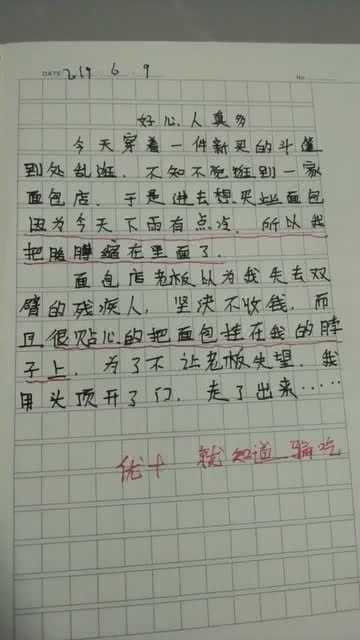 DATE 219 6 9 No
好心人真多
今天穿着一件新买的斗篷
到处乱逛．不知不觉逛到一家
面包店．于是进去想买些面包
因为今天下雨有点冷．所以我
把胳膊缩在里面了．
面包店老板以为我失去双
臂的残疾人．坚决不收钱．而
且很贴心的把面包挂在我的脖
子上．为了不让老板失望．我
用头顶开了门．走了出来……
优+ 就知道骗吃